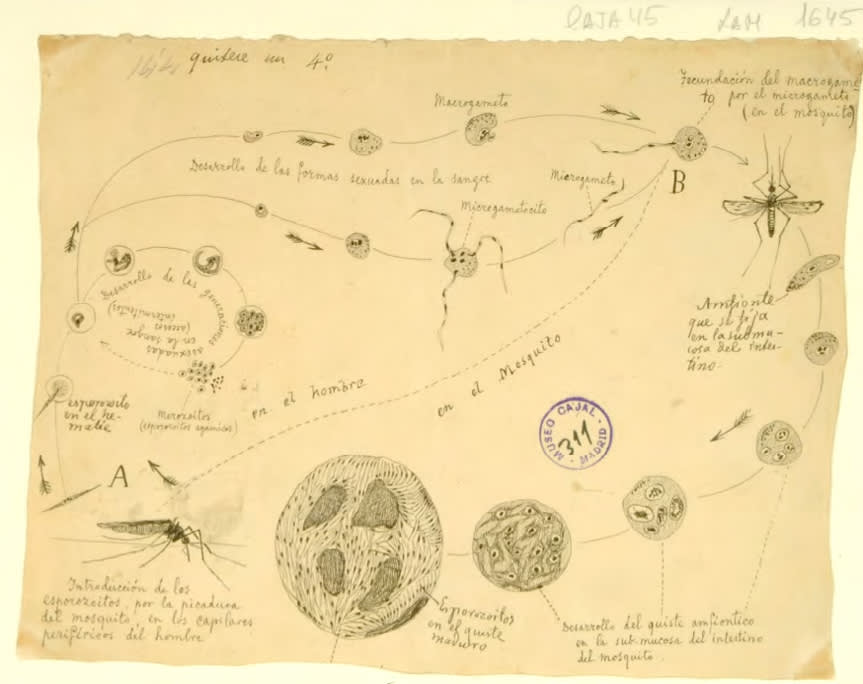 CAJA 45 LAM 1645
quisese un 4º
Fecundación del macrogame
to por el microgameto
(en el mosquito)
Macrogameto
Desarrollo de las formas sexuadas en la sangre
Microgameto
Microgametocito
B
Desarrollo de las generaciones
asexuadas
en la sangre
(acceso
intermitentes)
Amfionte
que se fija
en la submu-
cosa del intes-
tino.
Merozoitos
(esporozoitos agámicos)
esporozoito
en el he-
matie
en el hombre
en el Mosquito
MUSEO CAJAL - MADRID
311
A
Introducción de los
esporozoitos, por la picadura
del mosquito, en los capilares
periféricos del hombre
Esporozoitos
en el quiste
maduro
Desarrollo del quiste amfiontico
en la sub-mucosa del intestino
del mosquito.